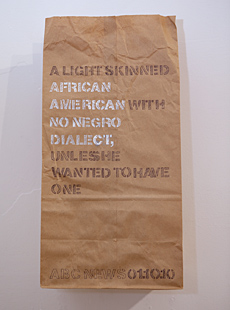 A LIGHT SKINNED
AFRICAN
AMERICAN WITH
NO NEGRO
DIALECT,
UNLESS HE
WANTED TO HAVE
ONE
ABC NEWS 01.10.10